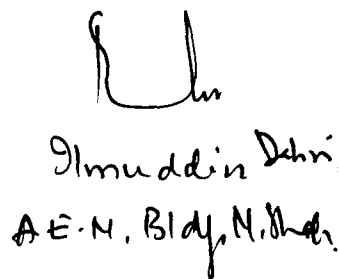 Ilmuddin Dahri
A E.N. Bldg, N.Shah.